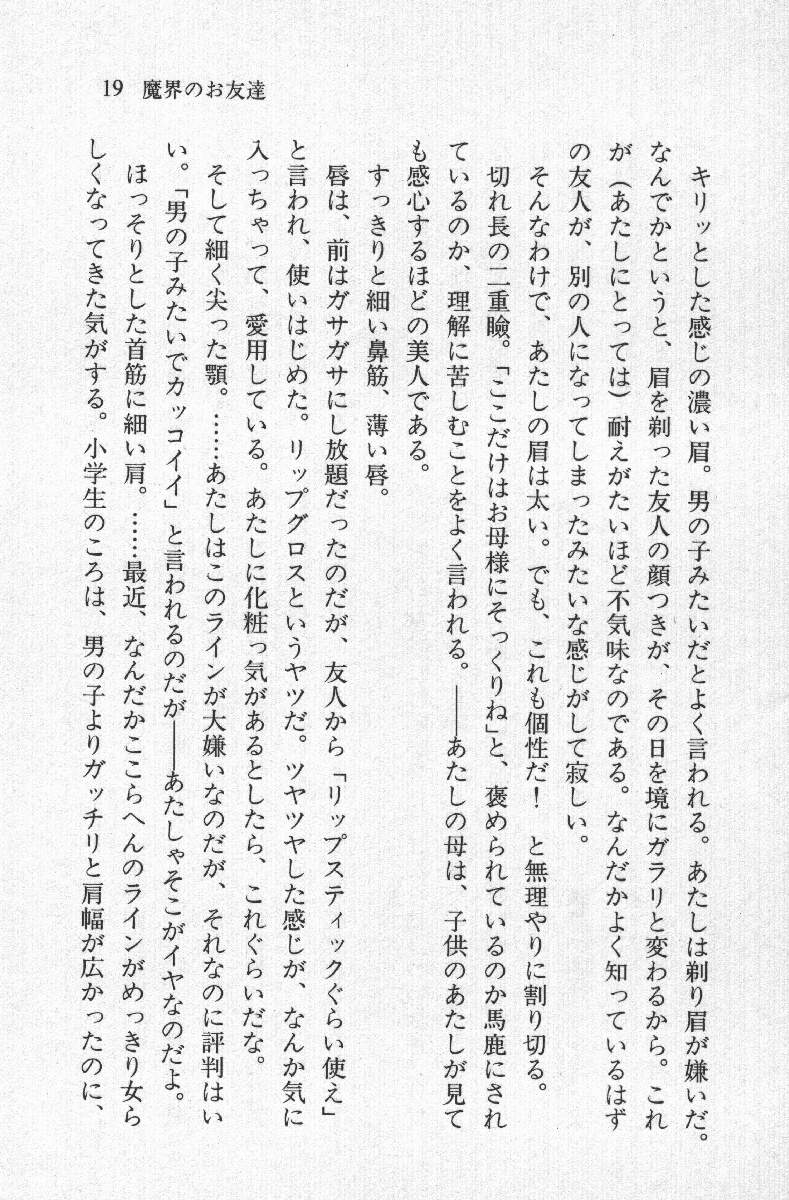 19 魔界のお友達
キリッとした感じの濃い眉。男の子みたいだとよく言われる。あたしは剃り眉が嫌いだ。
なんでかというと、眉を剃った友人の顔つきが、その日を境にガラリと変わるから。これ
が（あたしにとっては）耐えがたいほど不気味なのである。なんだかよく知っているはず
の友人が、別の人になってしまったみたいな感じがして寂しい。
そんなわけで、あたしの眉は太い。でも、これも個性だ！　と無理やりに割り切る。
切れ長の二重瞼。「ここだけはお母様にそっくりね」と、褒められているのか馬鹿にされ
ているのか、理解に苦しむことをよく言われる。――あたしの母は、子供のあたしが見て
も感心するほどの美人である。
すっきりと細い鼻筋、薄い唇。
唇は、前はガサガサにし放題だったのだが、友人から「リップスティックぐらい使え」
と言われ、使いはじめた。リップグロスというヤツだ。ツヤツヤした感じが、なんか気に
入っちゃって、愛用している。あたしに化粧っ気があるとしたら、これぐらいだな。
そして細く尖った顎。……あたしはこのラインが大嫌いなのだが、それなのに評判はい
い。「男の子みたいでカッコイイ」と言われるのだが――あたしゃそこがイヤなのだよ。
ほっそりとした首筋に細い肩。……最近、なんだかここらへんのラインがめっきり女ら
しくなってきた気がする。小学生のころは、男の子よりガッチリと肩幅が広かったのに、